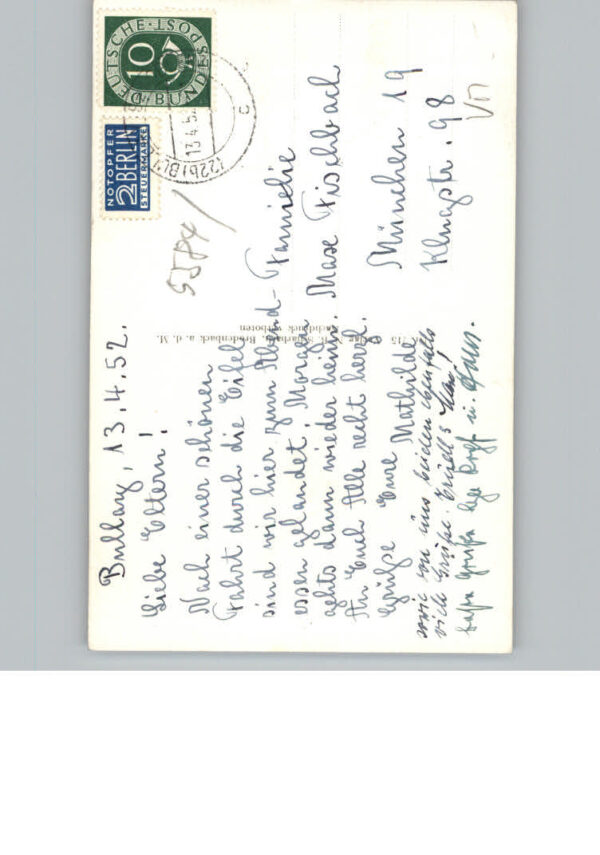 DEUTSCHE·BUNDESPOST
10
NOTOPFER
2 BERLIN
STEUERMARKE
(22b) BU
13.4.52
c
Bullay, 13.4.52.
Liebe Eltern!
Nach einer schönen
Fahrt durch die Eifel
sind wir hier zum Abend-
essen gelandet. Morgen
gehts dann wieder heim.
An Euch Alle recht herzl.
Grüße Eure Mathilde
sowie von uns beiden ebenfalls
viele Grüße.
Familie
Max Fischbach
München 19
Klugstr. 98
VII
Nachdruck verboten